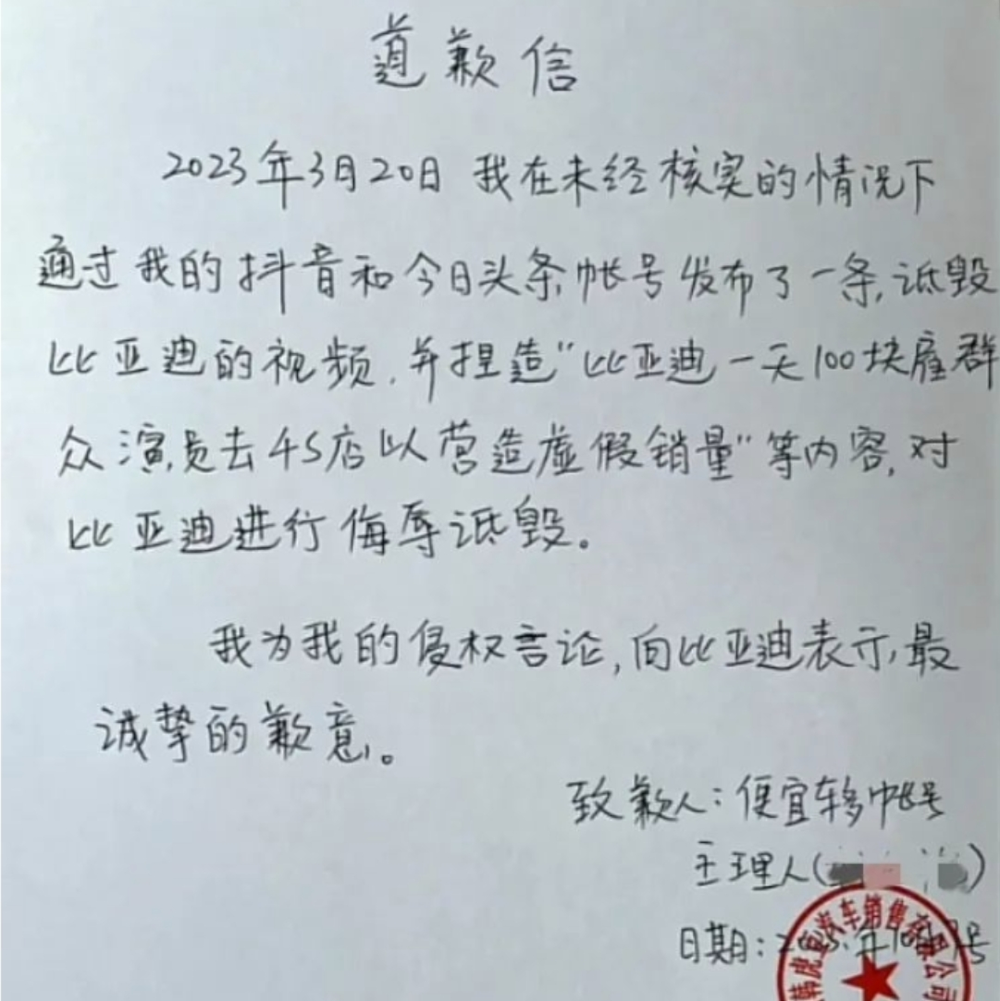 道歉信
2023年3月20日 我在未经核实的情况下
通过我的抖音和今日头条帐号发布了一条诋毁
比亚迪的视频,并捏造"比亚迪一天100块雇群
众演员去4S店以营造虚假销量"等内容,对
比亚迪进行侮辱诋毁。
我为我的侵权言论,向比亚迪表示最
诚挚的歉意。
致歉人:便宜车多帐号
主理人( )
日期: 年 号
虎 汽车销售有限公司